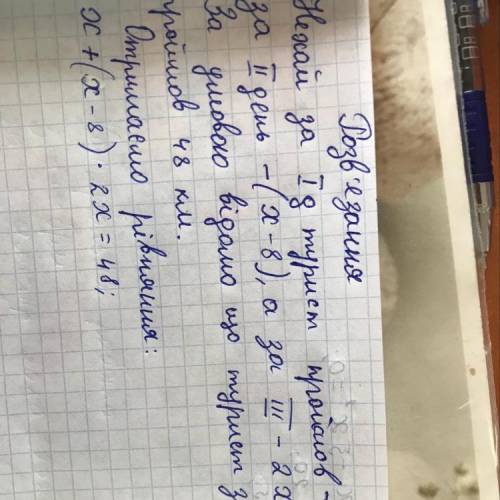 Розв'язання
Нехай за I д турист пройшов -
за II день - (x-8), а за III - 2x
За умовою відомо що турист з
пройшов 48 км.
Отримаємо рівняння:
x+(x-8)·2x=48;